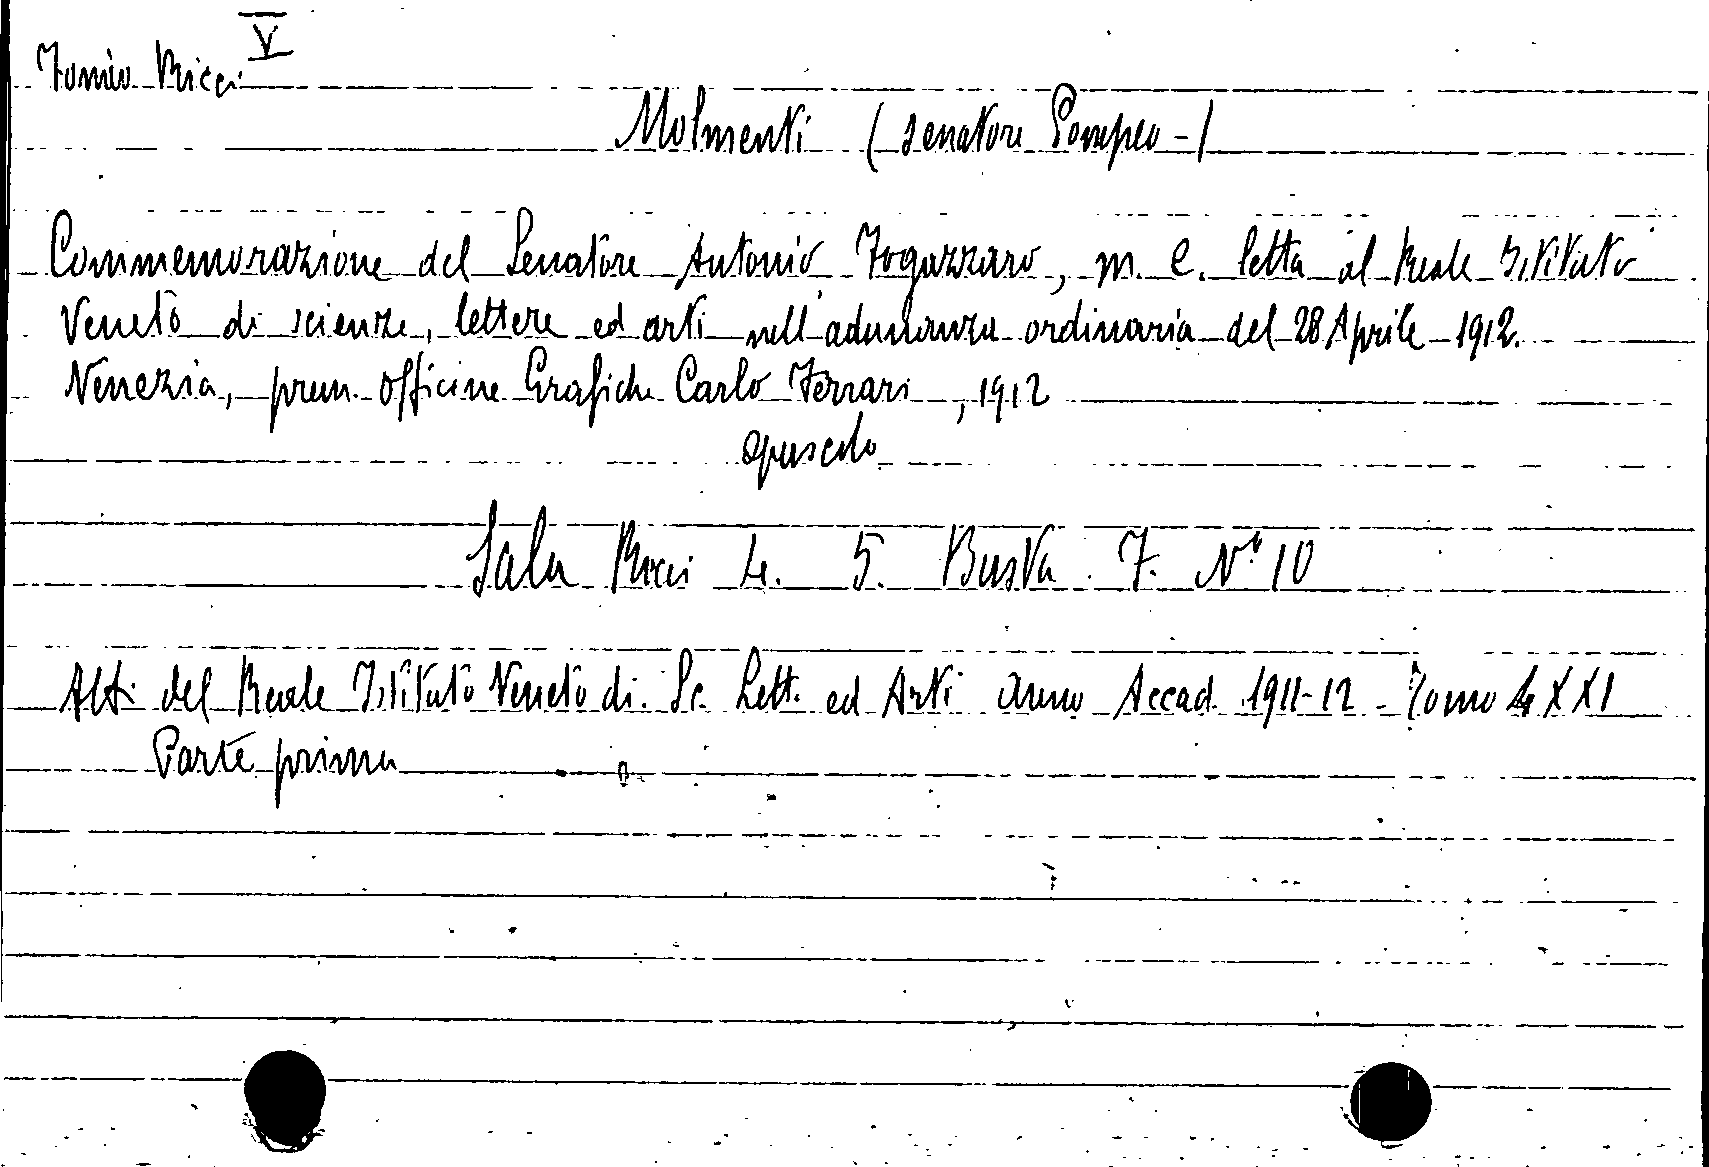 V
Fondo Ricci
Molmenti (senatore Pompeo -)
Commemorazione del Senatore Antonio Fogazzaro, m. e. letta al Reale Istituto
Veneto di scienze, lettere ed arti nell'adunanza ordinaria del 28 Aprile 1912.
Venezia, prem. officine Grafiche Carlo Ferrari, 1912
opuscolo
Sala Ricci L. 5. Busta 7. N° 10
Atti del Reale Istituto Veneto di Sc. Lett. ed Arti Anno Accad. 1911-12 - Tomo LXXI
Parte prima